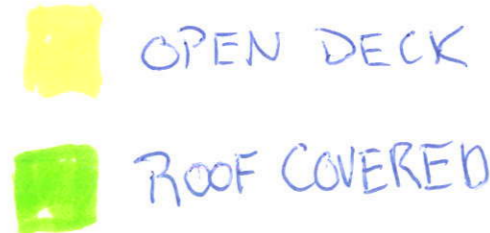 OPEN DECK
ROOF COVERED